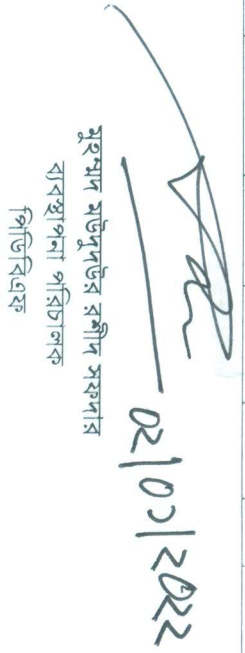 ০২|০১|২০২২
মুহম্মদ মউদুদউর রশীদ সফদার
ব্যবস্থাপনা পরিচালক
পিডিবিএফ